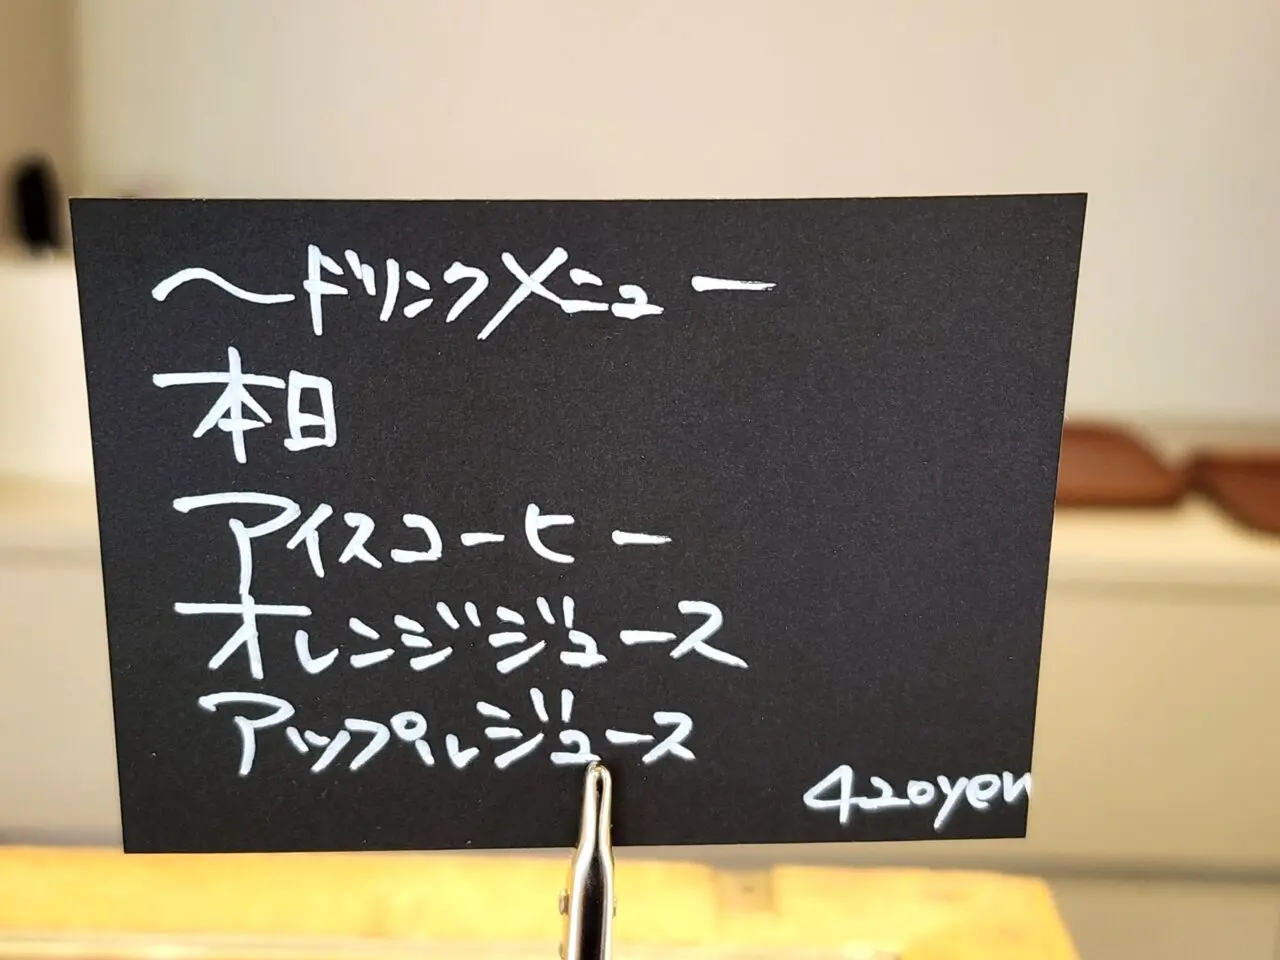 〜ドリンクメニュー
本日
アイスコーヒー
オレンジジュース
アップルジュース
420yen